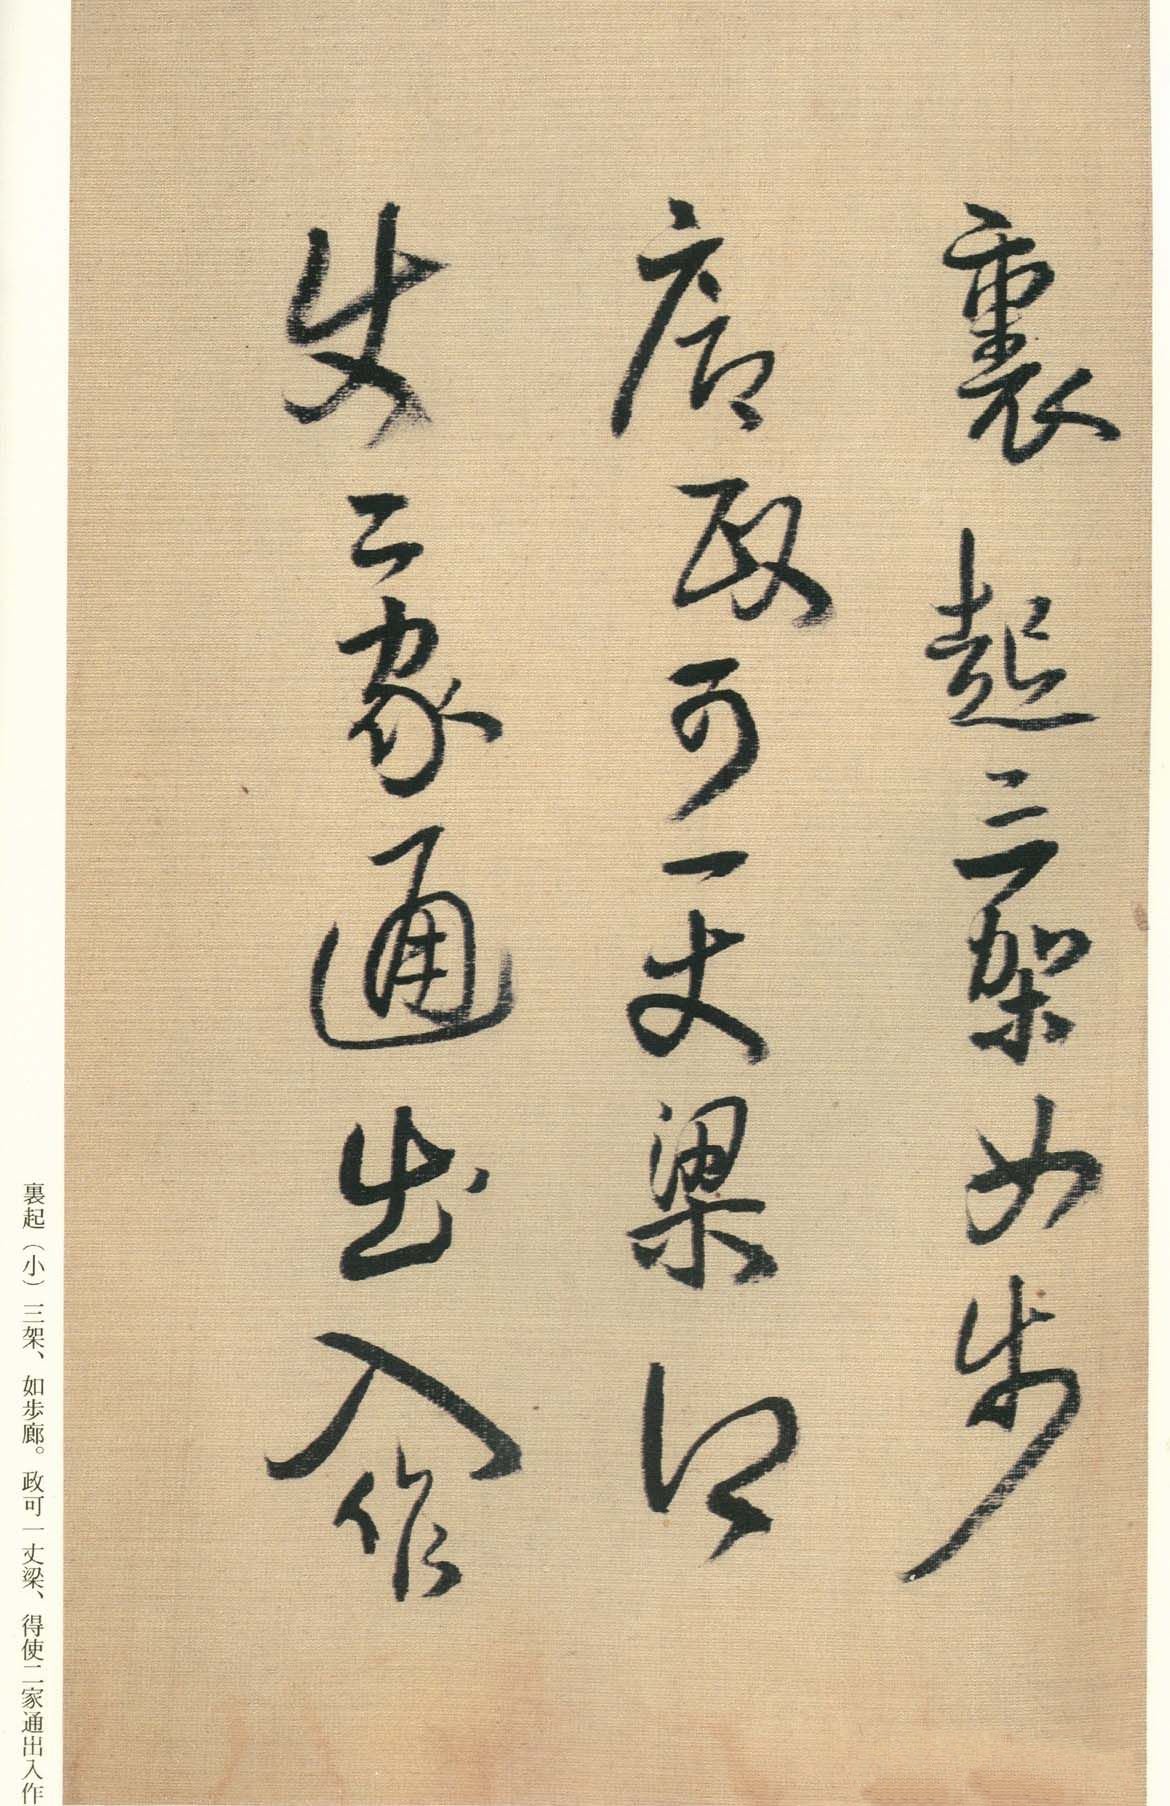 裏起三架如步
廊政可一丈梁得
使二家通出入作
裏起（小）三架、如歩廊。政可一丈梁、得使二家通出入作